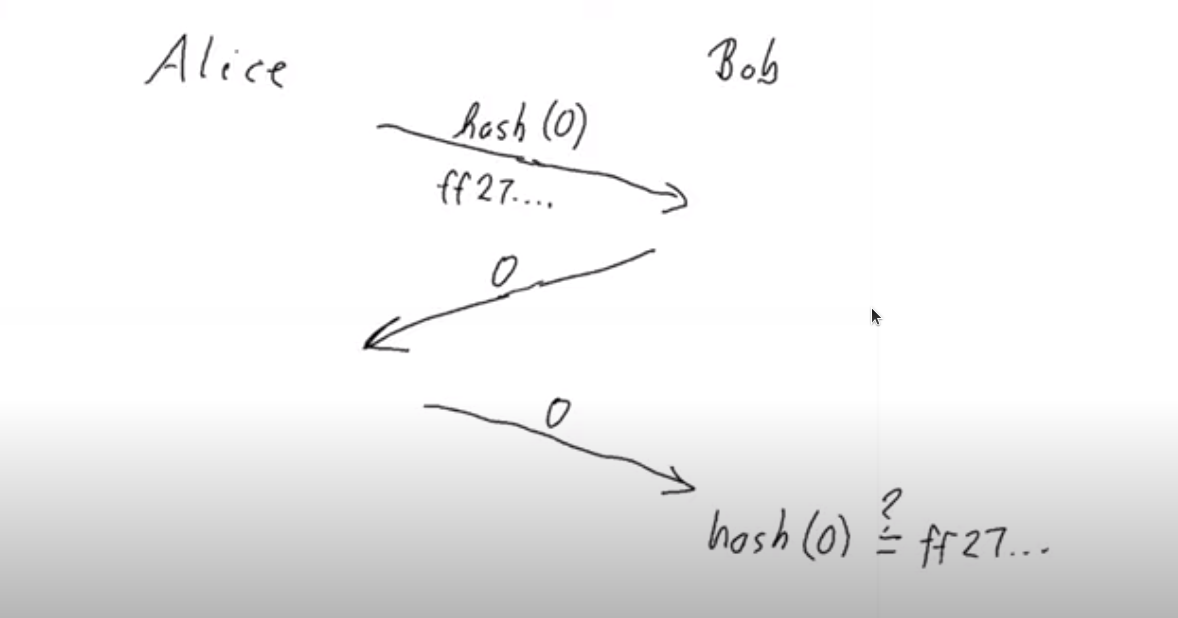 Alice Bob
hash (0)
ff27....
0
0
hash (0) ?= ff27...